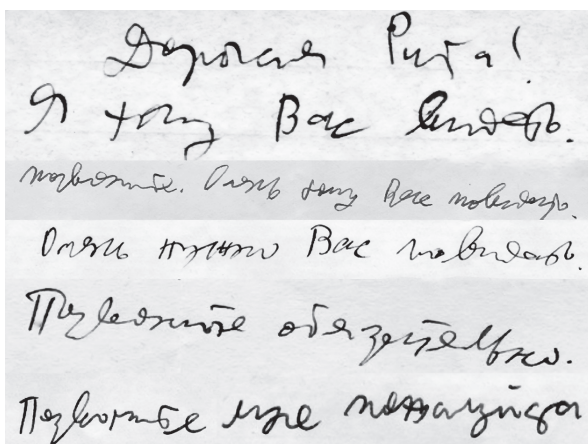 Дорогая Рита!
Я хочу Вас видеть.
позвоните. Очень хочу Вас повидать.
Очень нужно Вас повидать.
Позвоните обязательно.
Позвоните мне пожалуйста